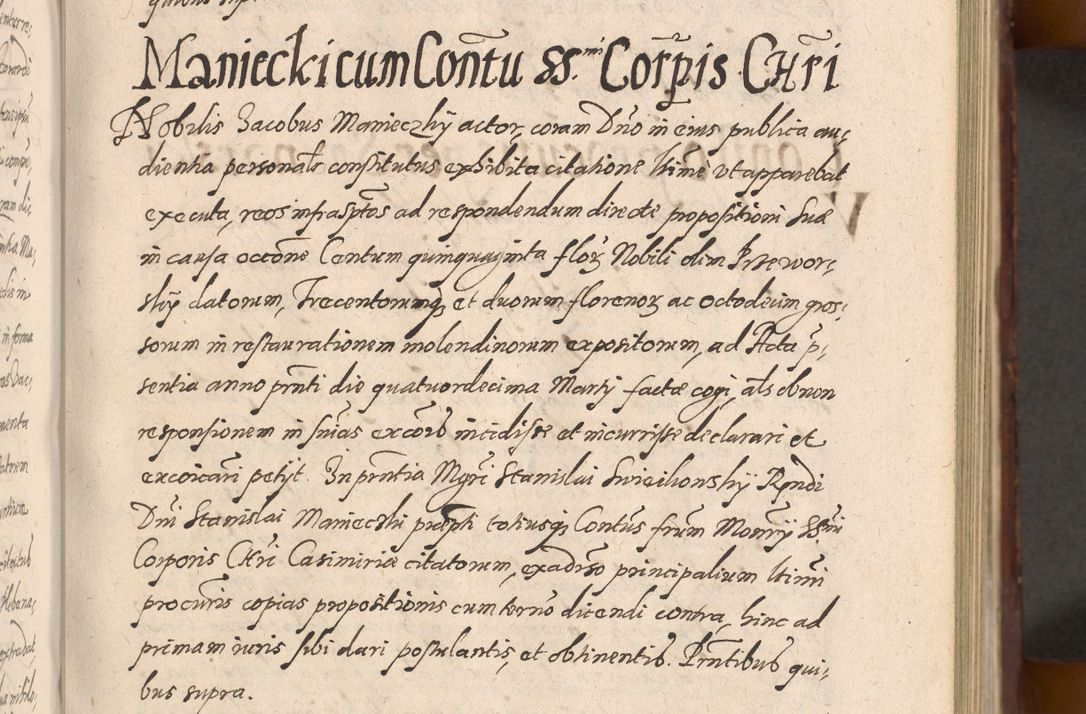 Maniecki cum Contũ SS.mi Corp̃is Chr̃i
Nobilis Jacobus Manieczky actor, coram Dño in eius publica au,
dientia personalr constitutus exhibita citatione ltimè vt apparebat
executa, reos infrasptos ad respondendum directe propositioni suæ
in causa occone Centum quinquaginta floz Nobili olim Przewor,
sky datorum, Trecentorumq et duorum florenoz ac octodecim gros,
sorum in restaurationem molendinorum expositorum, ad Acta p,
sentia anno prnti die quatuordecima Martij factæ cogi, als ob non
responsionem in snias excōrb incidisse et incurrisse declarari et
excoicari petijt. In prntia Mgri Stanislai Swiecikowsky Rndi
Dni Stanislai Manieczki præpti totiusq Contus frum Monrij SS.mi
Corporis Chri Casimiriæ citatorum, ex adrso principalium ltimi
procuris copias propositionis cum terno dicendi contra, hinc ad
primam iuris sibi dari postulantis, et obtinentis. Prntibus qui,
bus supra.